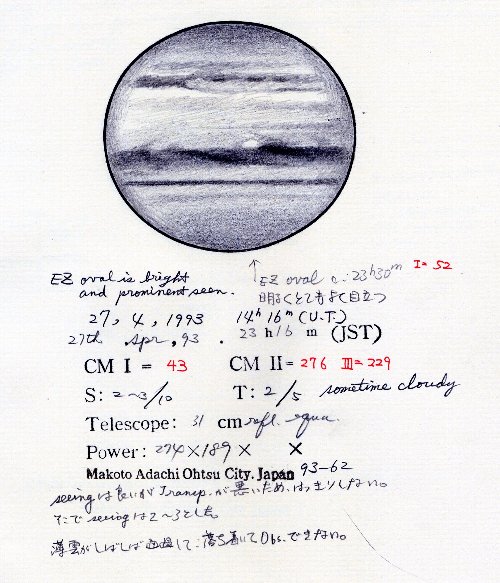 EZ oval is bright
and prominent seen.
EZ oval c. 23h30m I=52
明るくとてもよく目立つ
27, 4, 1993 14h 16m (U.T.)
27th Apr, 93. 23h16m (JST)
CM I = 43 CM II= 276 III=229
S: 2~3/10 T: 2/5 sometime cloudy
Telescope: 31 cm refl. equa.
Power: 274×189× ×
Makoto Adachi Ohtsu City. Japan 93-62
seeingは良いがTransp.が悪いため、はっきりしない。
そこでseeingは2~3とした。
薄雲がしばしば通過して落ち着いてObs.できない。